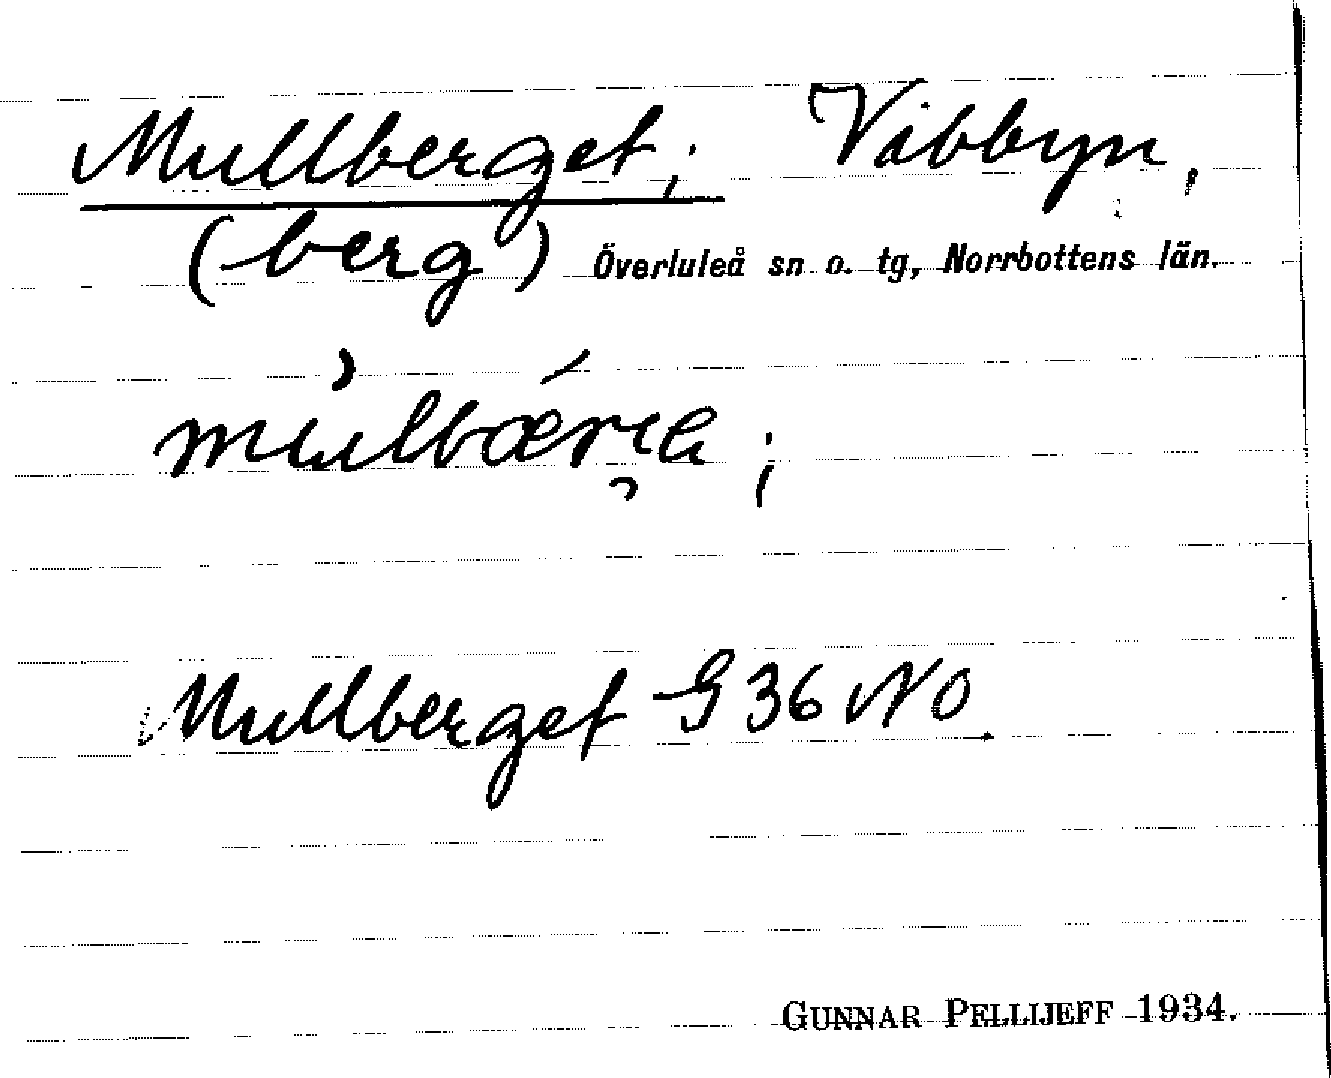 Mullberget; Vibbyn,
(berg) Överluleå sn o. tg, Norrbottens län.
Mullberget G 36 NO
GUNNAR PELLIJEFF 1934.